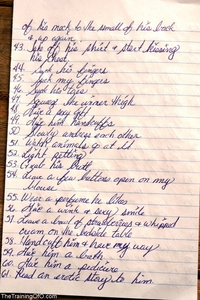 of his neck to the small of his back
& up again.
43. Take off his shirt & start kissing
his chest.
44. Suck his fingers
45. Suck my fingers
46. Suck his toes
47. Squeeze the inner thigh
48. Give a sexy gift
49. Use handcuffs
50. Slowly undress each other
51. Watch animals go at it
52. Light petting
53. Grab his butt
54. Leave a few buttons open on my
blouse
55. Wear a perfume he likes
56. Give a wink & sexy smile
57. Leave a bowl of strawberries & whipped
cream on the bedside table
58. Handcuff him & have my way
59. Give him a bath
60. Give him a pedicure
61. Read an erotic story to him
TheTrainingOfO.com